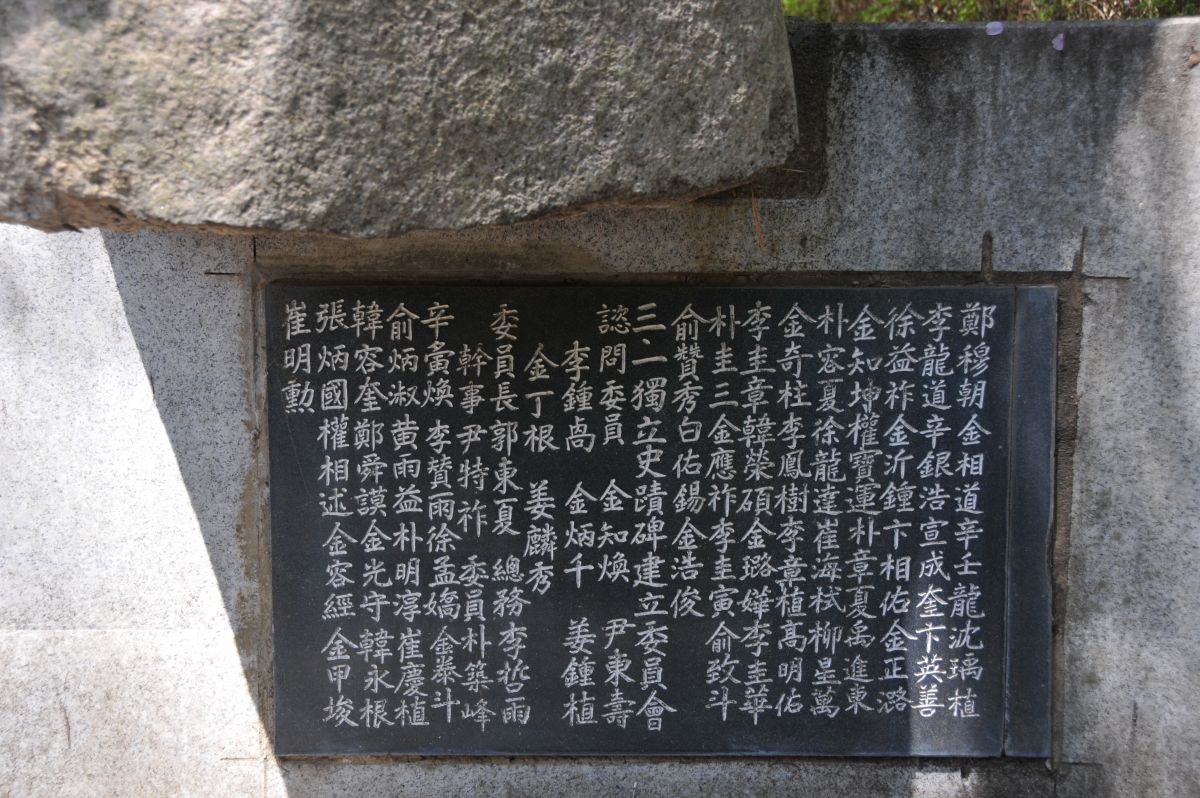 鄭穆朝金相道辛壬龍沈瑀植
李龍道辛銀浩宣成奎卞英善
徐益祚金沂鍾卞相佑金正潞
金知坤權寶運朴章夏禹進東
朴容夏徐龍達崔海栻柳星萬
金奇柱李鳳樹李章植高明佑
李圭章韓榮碩金璐嬅李圭華
朴圭三金應祚李圭寅俞致斗
俞贊秀白佑錫金浩俊
三·一獨立史蹟碑建立委員會
諮問委員 金知煥 尹東壽
李鍾卨 金炳千 姜鍾植
金丁根 姜麟秀
委員長郭東夏 總務李哲雨
幹事尹特祚 委員朴築峰
辛煥 李贊雨徐孟嬌金泰斗
俞炳淑黄雨益朴明淳崔慶植
韓容奎鄭舜謨金光守韓永根
張炳國權相述金容經金甲埈
崔明勳